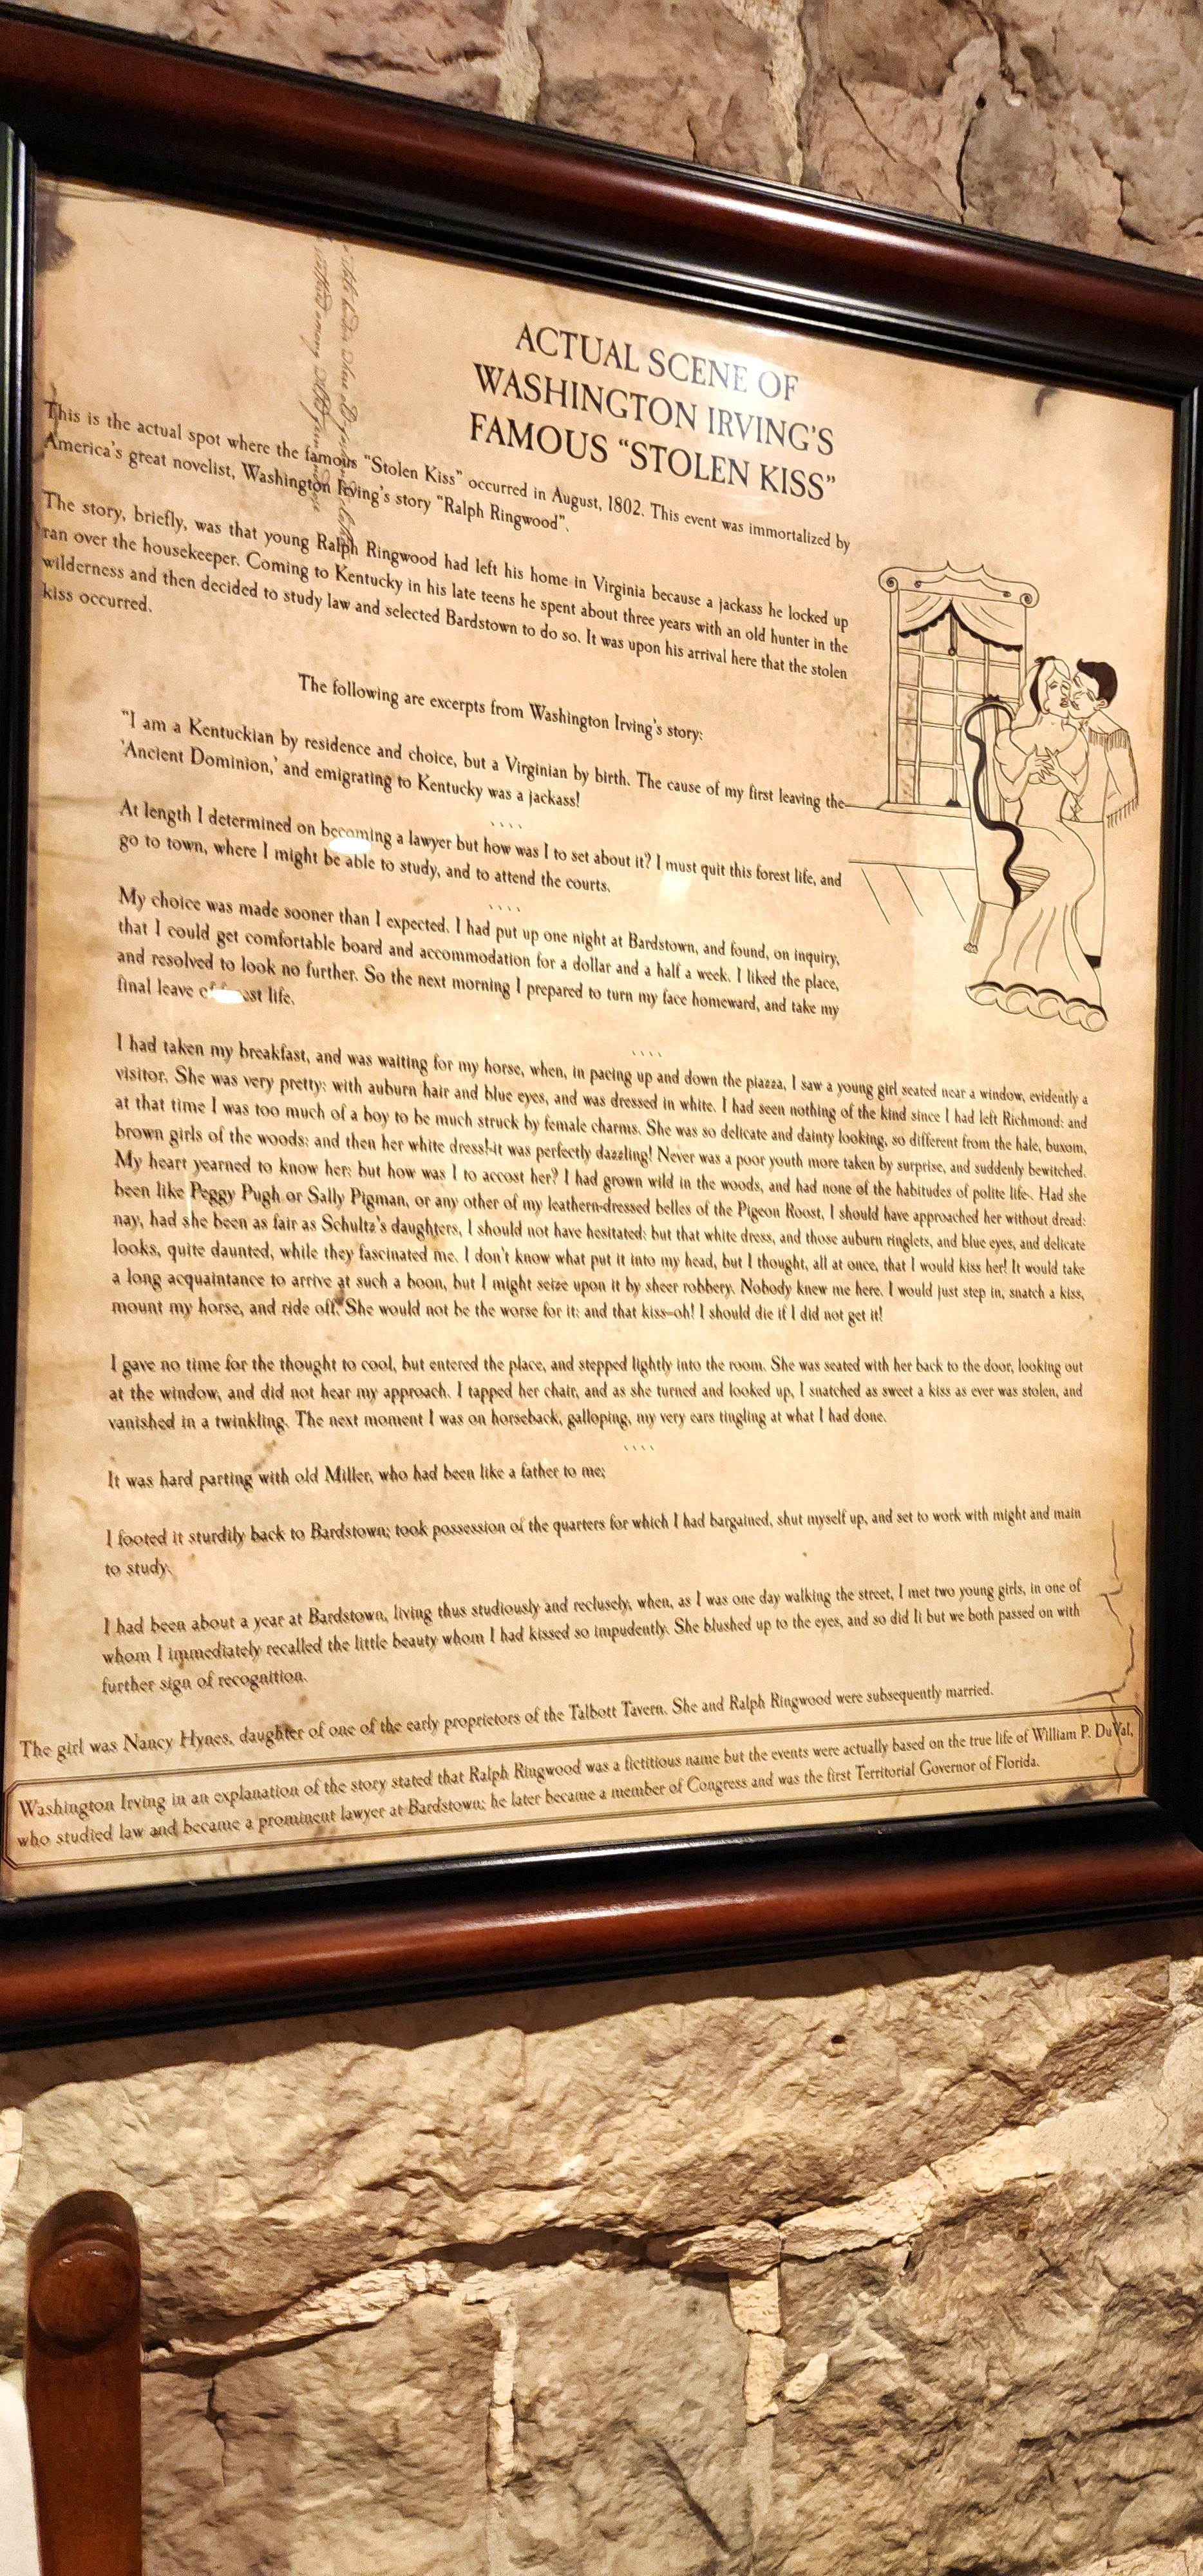 ACTUAL SCENE OF
WASHINGTON IRVING'S
FAMOUS "STOLEN KISS"
This is the actual spot where the famous "Stolen Kiss" occurred in August, 1802. This event was immortalized by
America's great novelist, Washington Irving's story "Ralph Ringwood".
The story, briefly, was that young Ralph Ringwood had left his home in Virginia because a jackass he locked up
ran over the housekeeper. Coming to Kentucky in his late teens he spent about three years with an old hunter in the
wilderness and then decided to study law and selected Bardstown to do so. It was upon his arrival here that the stolen
kiss occurred.
The following are excerpts from Washington Irving's story:
"I am a Kentuckian by residence and choice, but a Virginian by birth. The cause of my first leaving the
'Ancient Dominion,' and emigrating to Kentucky was a jackass!
At length I determined on becoming a lawyer but how was I to set about it? I must quit this forest life, and
go to town, where I might be able to study, and to attend the courts.
My choice was made sooner than I expected. I had put up one night at Bardstown, and found, on inquiry,
that I could get comfortable board and accommodation for a dollar and a half a week. I liked the place,
and resolved to look no further. So the next morning I prepared to turn my face homeward, and take my
final leave of forest life.
I had taken my breakfast, and was waiting for my horse, when, in pacing up and down the piazza, I saw a young girl seated near a window, evidently a
visitor. She was very pretty; with auburn hair and blue eyes, and was dressed in white. I had seen nothing of the kind since I had left Richmond; and
at that time I was too much of a boy to be much struck by female charms. She was so delicate and dainty looking, so different from the hale, buxom,
brown girls of the woods; and then her white dress!-it was perfectly dazzling! Never was a poor youth more taken by surprise, and suddenly bewitched.
My heart yearned to know her; but how was I to accost her? I had grown wild in the woods, and had none of the habitudes of polite life. Had she
been like Peggy Pugh or Sally Pigman, or any other of my leathern-dressed belles of the Pigeon Roost, I should have approached her without dread;
nay, had she been as fair as Schultz's daughters, I should not have hesitated; but that white dress, and those auburn ringlets, and blue eyes, and delicate
looks, quite daunted, while they fascinated me. I don't know what put it into my head, but I thought, all at once, that I would kiss her! It would take
a long acquaintance to arrive at such a boon, but I might seize upon it by sheer robbery. Nobody knew me here. I would just step in, snatch a kiss,
mount my horse, and ride off. She would not be the worse for it; and that kiss-oh! I should die if I did not get it!
I gave no time for the thought to cool, but entered the place, and stepped lightly into the room. She was seated with her back to the door, looking out
at the window, and did not hear my approach. I tapped her chair, and as she turned and looked up, I snatched as sweet a kiss as ever was stolen, and
vanished in a twinkling. The next moment I was on horseback, galloping, my very ears tingling at what I had done.
It was hard parting with old Miller, who had been like a father to me;
I footed it sturdily back to Bardstown; took possession of the quarters for which I had bargained, shut myself up, and set to work with might and main
to study.
I had been about a year at Bardstown, living thus studiously and reclusely, when, as I was one day walking the street, I met two young girls, in one of
whom I immediately recalled the little beauty whom I had kissed so impudently. She blushed up to the eyes, and so did I; but we both passed on with
further sign of recognition.
The girl was Nancy Hynes, daughter of one of the early proprietors of the Talbott Tavern. She and Ralph Ringwood were subsequently married.
Washington Irving in an explanation of the story stated that Ralph Ringwood was a fictitious name but the events were actually based on the true life of William P. DuVal,
who studied law and became a prominent lawyer at Bardstown; he later became a member of Congress and was the first Territorial Governor of Florida.